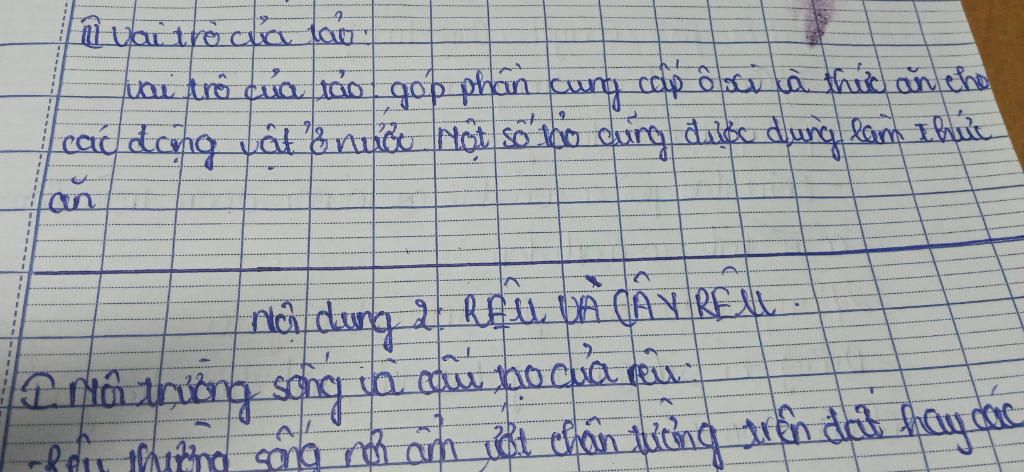 II Vai trò của tảo:
Vai trò của tảo: góp phần cung cấp ô xi và thức ăn cho
các động vật ở nước Một số tảo cũng được dùng làm thức
ăn
Nội dung 2: RÊU VÀ CÂY RÊU.
I Môi trường sống và cấu tạo của rêu:
-Rêu thường sống nơi ẩm ướt chân tường trên đất hay các